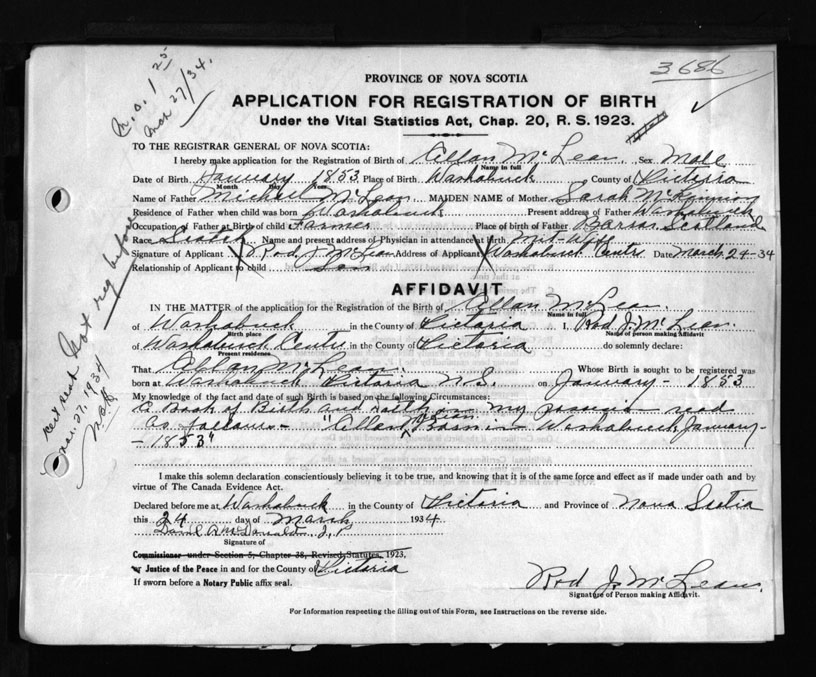 3686
M.O. 1 25
Mar 27/34.
PROVINCE OF NOVA SCOTIA
APPLICATION FOR REGISTRATION OF BIRTH
Under the Vital Statistics Act, Chap. 20, R. S. 1923.
TO THE REGISTRAR GENERAL OF NOVA SCOTIA:
I hereby make application for the Registration of Birth of Allan McLean. Sex Male
Name in full
Date of Birth January 1853 Place of Birth Washabuck County of Victoria
Month Day Year
Name of Father Michael McLean MAIDEN NAME of Mother Sarah McKinnon
Residence of Father when child was born Washabuck Present address of Father Washabuck
Occupation of Father at Birth of child Farmer Place of birth of Father Barra Scotland
Race Scotch Name and present address of Physician in attendance at birth Mid-Wife
Signature of Applicant X Rod. J. McLean Address of Applicant X Washabuck Centre Date March 24-34
Relationship of Applicant to child Son
Not reg before
AFFIDAVIT
IN THE MATTER of the application for the Registration of the Birth of Allan McLean.
Name in full
of Washabuck in the County of Victoria I, Rod J. McLean.
Birth place Name of person making Affidavit
of Washabuck Centre in the County of Victoria do solemnly declare:
Present residence.
That Allan McLean. Whose Birth is sought to be registered was
born at Washabuck Victoria N.S. on January - 1853
My knowledge of the fact and date of such Birth is based on the following Circumstances:
A Book of Birth and in my read
as follows - "Allan McLean Born in Washabuck January -
- 1853"
Mar. 27, 1934
I make this solemn declaration conscientiously believing it to be true, and knowing that it is of the same force and effect as if made under oath and by
virtue of The Canada Evidence Act.
Declared before me at Washabuck in the County of Victoria and Province of Nova Scotia
this 24 day of March 1934
A McDonald J.P.
Signature of
Commissioner under Section 5, Chapter 38, Revised Statutes, 1923.
or Justice of the Peace in and for the County of Victoria
If sworn before a Notary Public affix seal.
Rod J. McLean.
Signature of Person making Affidavit.
For Information respecting the filling out of this Form, see Instructions on the reverse side.